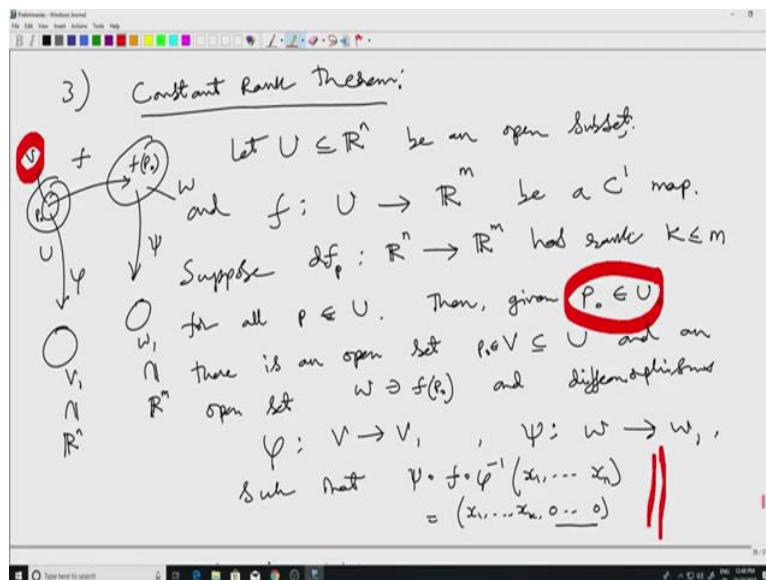 Preliminaries - Windows Journal
File Edit View Insert Actions Tools Help
3) Constant Rank Theorem:
Let U ⊆ ℝⁿ be an open subset.
and f : U → ℝᵐ be a C¹ map.
Suppose df_p : ℝⁿ → ℝᵐ has rank k ≤ m
for all p ∈ U. Then, given p₀ ∈ U
there is an open set p₀ ∈ V ⊆ U and an
open set W ∋ f(p₀) and diffeomorphisms
φ : V → V₁ , ψ : W → W₁ ,
such that ψ∘f∘φ⁻¹ (x₁, ... xₙ)
= (x₁, ... xₖ, 0 ... 0)
V f f(p₀) W
p₀
U φ ψ
V₁ W₁
∩ ∩
ℝⁿ ℝᵐ
Type here to search